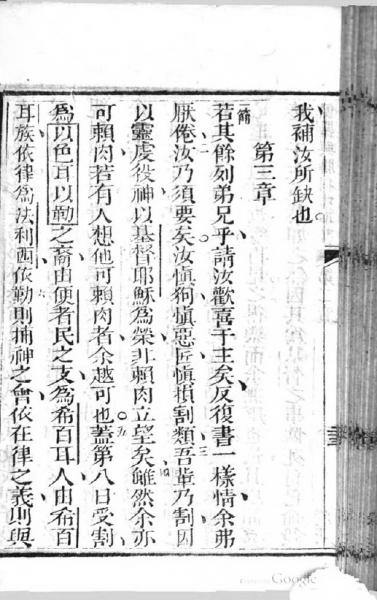 我補汝所缺也。
第三章
一節若其餘列弟兄乎請汝歡喜于主矣反復書一樣情余弗
厭倦汝乃須要矣二汝愼狗愼惡匠愼損割類三吾輩乃割因
以靈虔役神以基督耶穌爲榮非賴肉立望矣四雖然余亦
可賴肉若有人想他可賴肉者余越可也。五蓋第八日受割
爲以色耳以勒之裔由便者民之支爲希百耳人由希百
耳族依律爲法利西六依勒則捕神之會依在律之義則與
Google